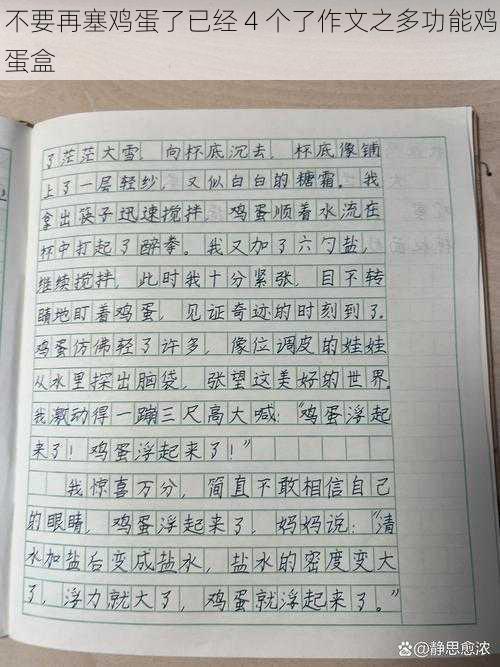 不要再塞鸡蛋了已经4个了作文之多功能鸡
蛋盒
了茫茫大雪，向杯底沉去，杯底像铺
上了一层轻纱，又似白白的糖霜。我
拿出筷子迅速搅拌，鸡蛋顺着水流在
杯中打起了醉拳。我又加了六勺盐，
继续搅拌，此时我十分紧张，目不转
睛地盯着鸡蛋，见证奇迹的时刻到了。
鸡蛋仿佛轻了许多，像位调皮的娃娃
从水里探出脑袋，张望这美好的世界，
我激动得一蹦三尺高大喊：“鸡蛋浮起
来了！鸡蛋浮起来了！”
我惊喜万分，简直不敢相信自己
的眼睛，鸡蛋浮起来了，妈妈说：“清
水加盐后变成盐水，盐水的密度变大
了，浮力就大了，鸡蛋就浮起来了。”
@静思愈浓